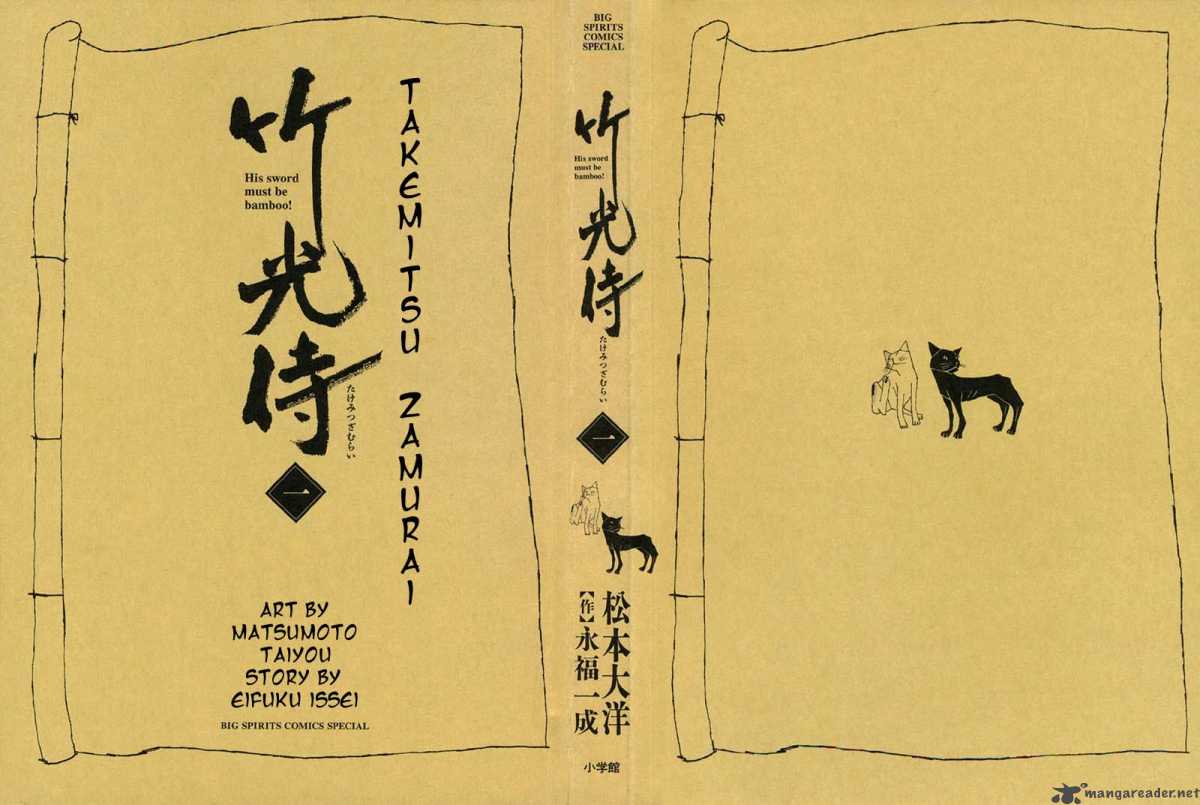 竹光侍
His sword
must be
bamboo!
たけみつざむらい
一
TAKEMITSU ZAMURAI
ART BY
MATSUMOTO
TAIYOU
STORY BY
EIFUKU ISSEI
BIG SPIRITS COMICS SPECIAL
BIG
SPIRITS
COMICS
SPECIAL
竹光侍
His sword
must be
bamboo!
たけみつざむらい
一
松本大洋
【作】永福一成
小学館
mangareader.net